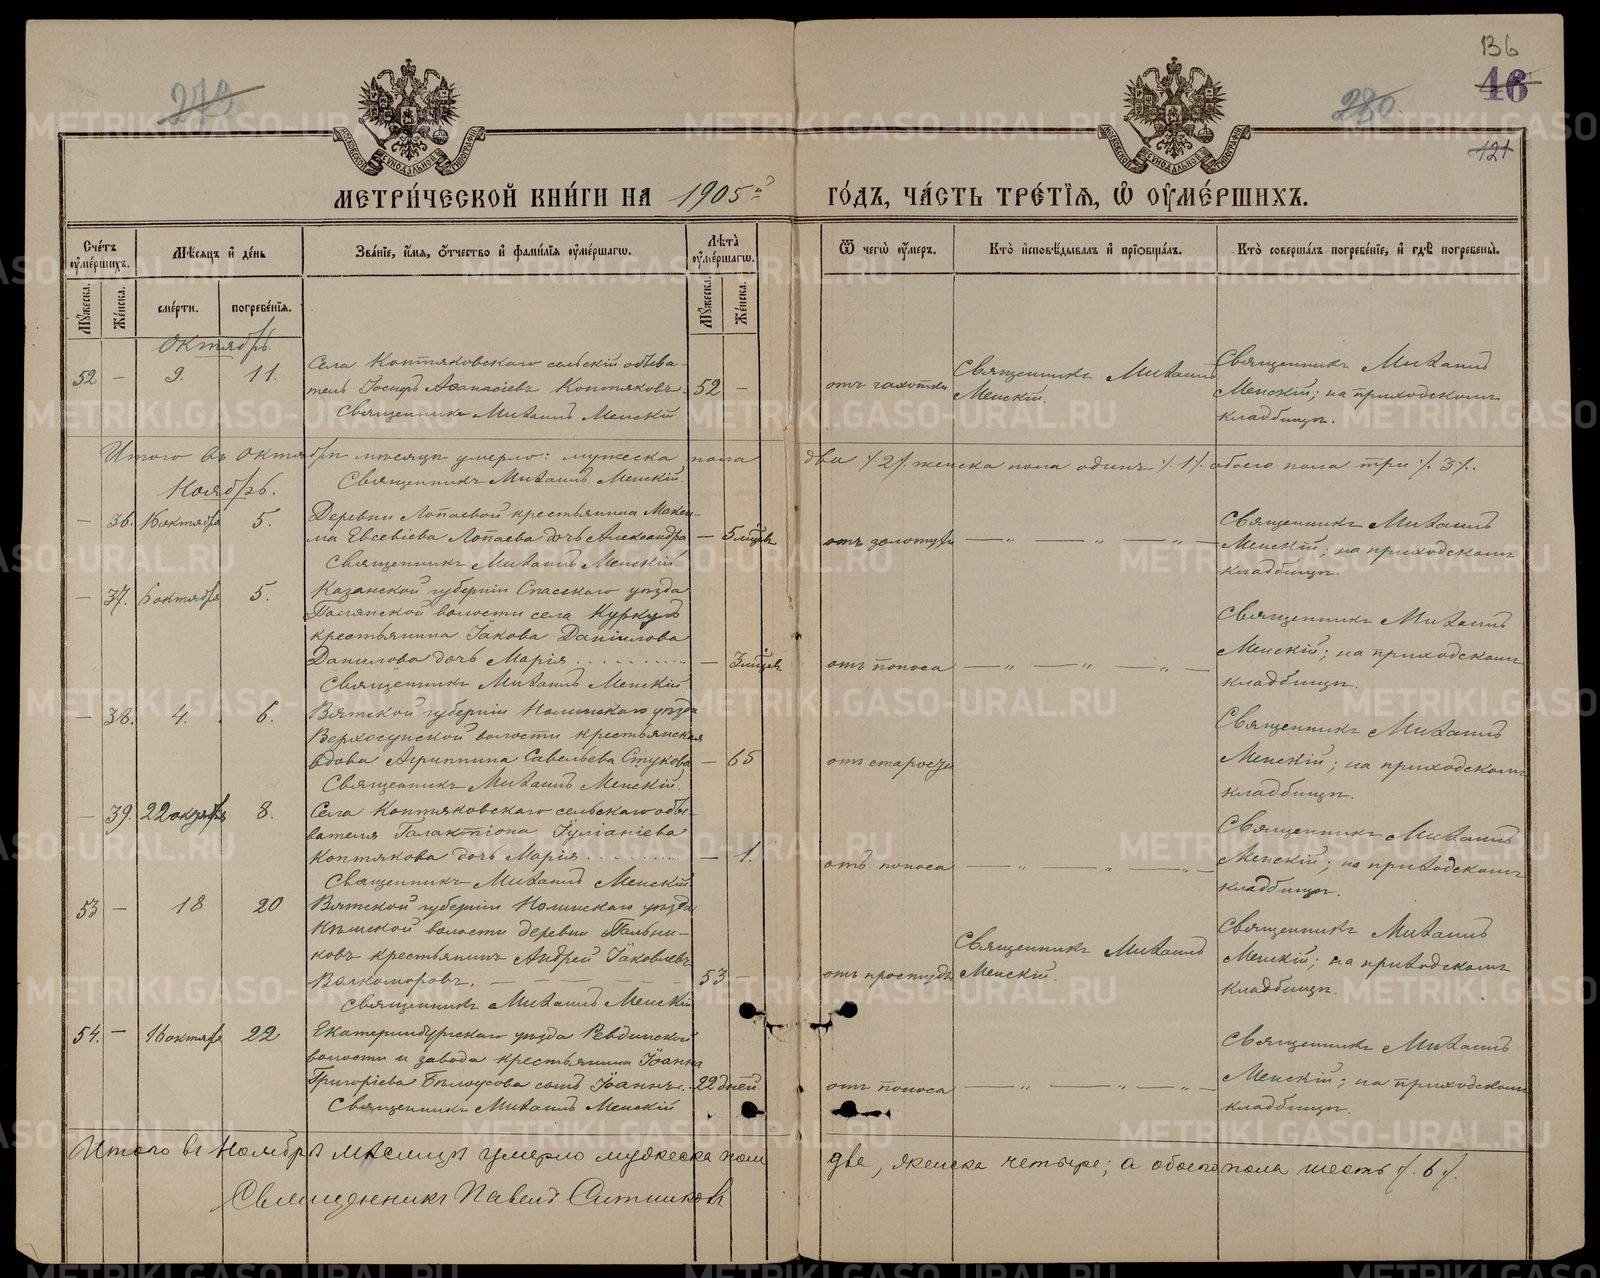 136
46
279
280
121
МЕТРИ́ЧЕСКОЙ КНИ́ГИ НА 1905й
ГО́ДЪ, ЧА́СТЬ ТРЕ́ТІѦ, Ѡ ОУМЕ́РШИХЪ.
Сче́тъ оуме́ршихъ.
Мѣ́сѧцъ и де́нь
Зва́нїе, и́мѧ, о́тчество и фами́лїѧ оуме́ршагѡ.
Лѣта̀ оуме́ршагѡ.
Ѿ чегѡ̀ оу́меръ.
Кто̀ исповѣ́дывалъ и прїѡбща́лъ.
Кто̀ соверша́лъ погребе́нїе, и гдѣ̀ погребены̀.
Мꙋ́жеска.
Же́нска.
сме́рти.
погребе́нїѧ.
Мꙋ́жеска.
Же́нска.
Октябрь.
52 — 9. 11. Села Коптяковскаго сельскій обыва-
тель Іосифъ Аѳанасіевъ Коптяковъ 52 —
Священникъ Михаилъ Менскій
отъ чахотки
Священникъ Михаилъ
Менскій.
Священникъ Михаилъ
Менскій; на приходскомъ
кладбищѣ.
Итого въ октябрѣ мѣсяцѣ умерло: мужеска пола два /2/. женска пола одинъ /.1/. обоего пола три /. 3/.
Священникъ Михаилъ Менскій.
Ноябрь.
— 36. 16 октября 5. Деревни Лопаевой крестьянина Макси-
ма Евсевіева Лопаева дочь Александра — 5 мѣсцевъ
Священникъ Михаилъ Менскій
отъ золотухи — „ — „ — „ —
Священникъ Михаилъ
Менскій; на приходскомъ
кладбищѣ.
— 37. 6 октября 5. Казанской губерніи Спасскаго уѣзда
Полянской волости села Куркуль
крестьянина Іакова Даніилова
Данилова дочь Марія — 3 мѣсцевъ
Священникъ Михаилъ Менскій.
отъ поноса — „ — „ — „ —
Священникъ Михаилъ
Менскій; на приходскомъ
кладбищѣ.
— 38. 4. 6. Вятской губерніи Нолинскаго уѣзда
Верхосунской волости крестьянская
вдова Агриппина Савельева Стукова — 65
Священникъ Михаилъ Менскій.
отъ старости
Священникъ Михаилъ
Менскій; на приходскомъ
кладбищѣ.
— 39. 22 октября 8. Села Коптяковскаго сельскаго обы-
вателя Галактіона Іуліаніева
Коптякова дочь Марія — 1.
Священникъ Михаилъ Менскій
отъ поноса — „ — „ — „ —
Священникъ Михаилъ
Менскій; на приходскомъ
кладбищѣ.
53 — 18 20 Вятской губерніи Нолинскаго уѣзда
волости деревни
ковъ крестьянинъ Андрей Іаковлевъ
Волкоморовъ. 53 —
Священникъ Михаилъ Менскій
отъ простуды
Священникъ Михаилъ
Менскій.
Священникъ Михаилъ
Менскій; на приходскомъ
кладбищѣ.
54. — 16 октября 22 Екатеринбургскаго уѣзда Ревдинской
волости и завода крестьянина Іоанна
Григоріева Бѣлоусова сынъ Іоаннъ. 22 дней
Священникъ Михаилъ Менскій
отъ поноса — „ — „ — „ —
Священникъ Михаилъ
Менскій; на приходскомъ
кладбищѣ.
Итого въ Ноябрѣ мѣсяцѣ умерло мужеска пола два, женска четыре; а обоего пола шесть /. 6 /.
Священникъ Павелъ Ситниковъ